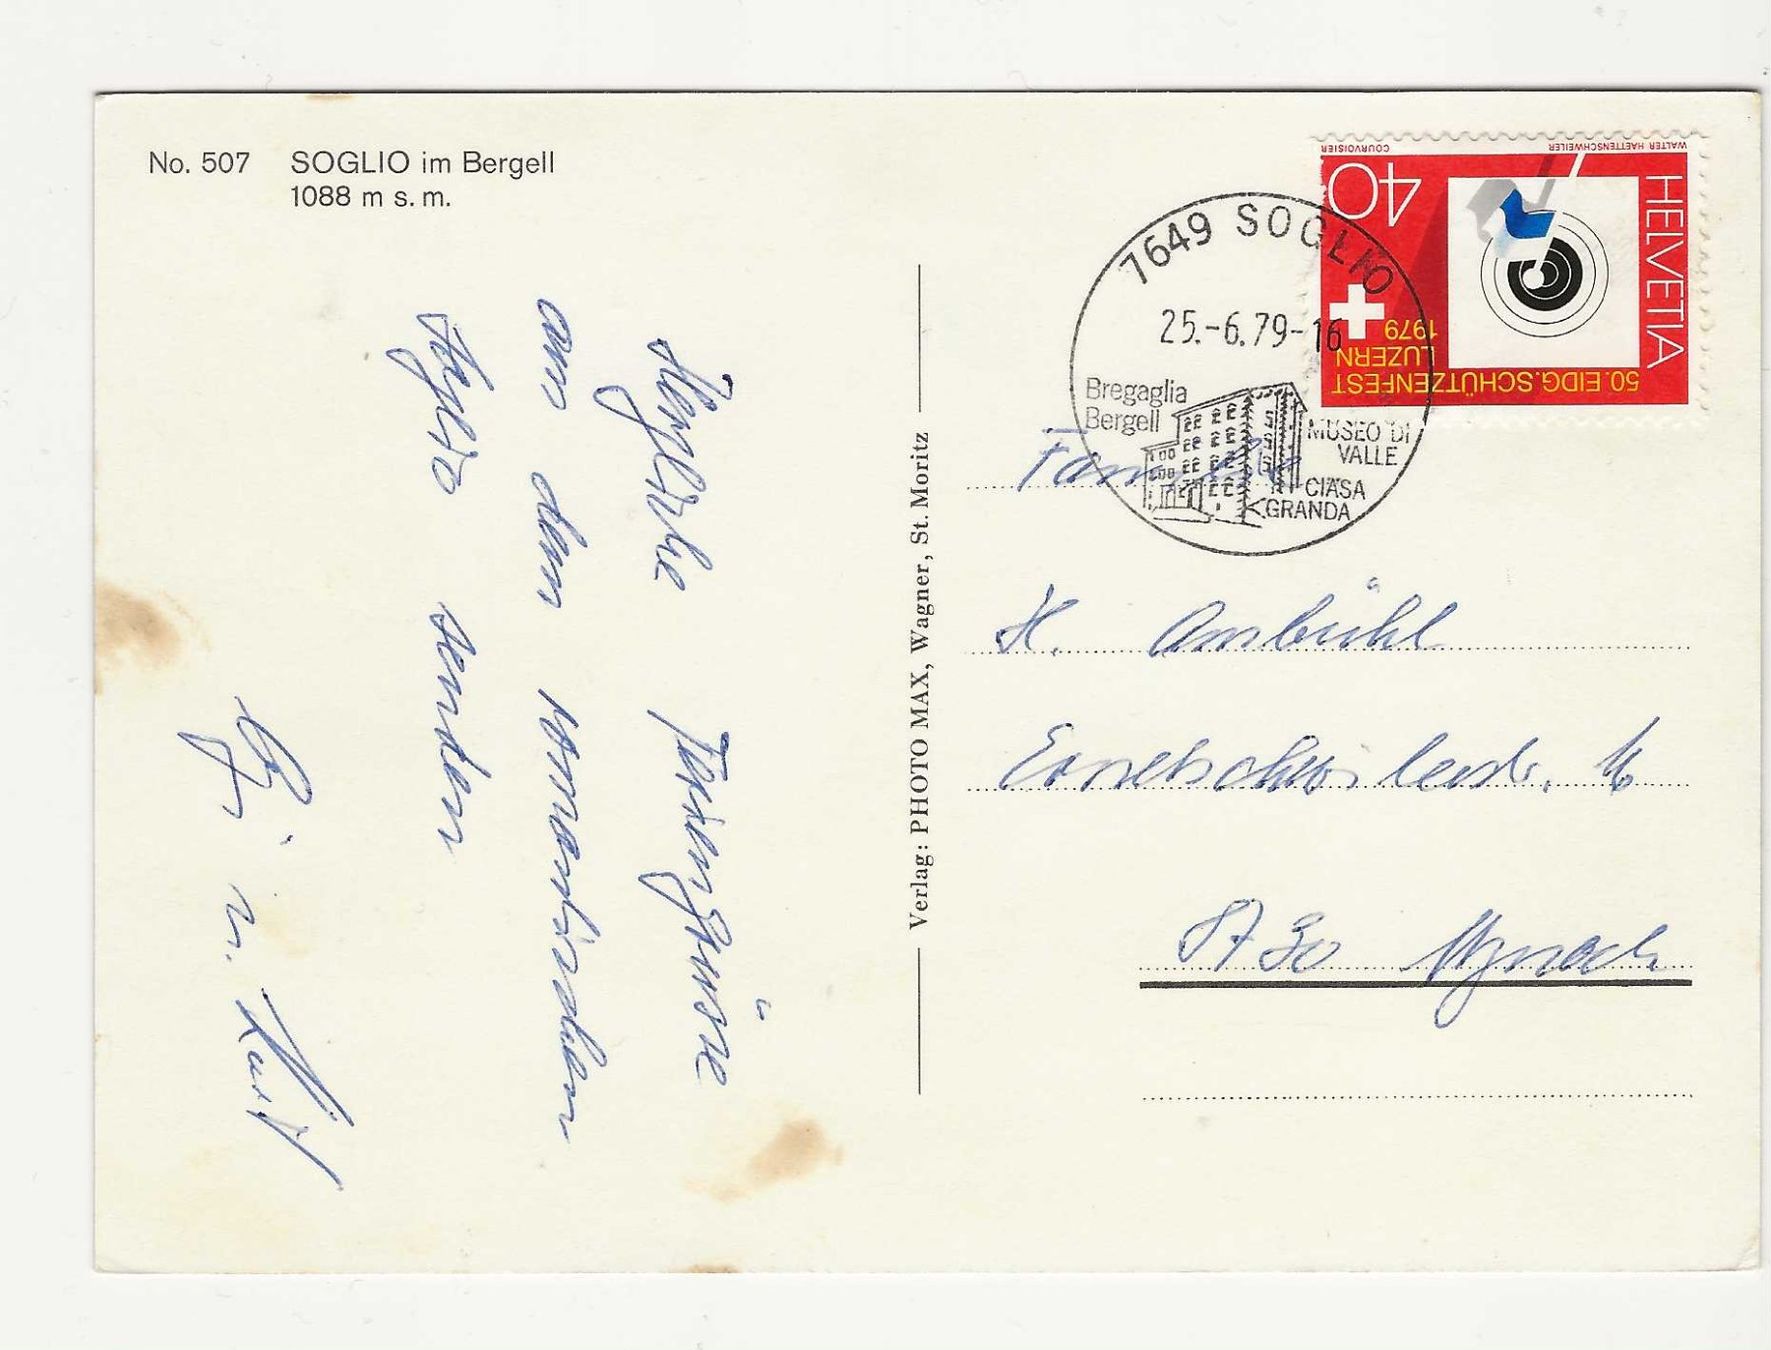 No. 507 SOGLIO im Bergell
1088 m s. m.
Herzliche Feriengrüsse
aus dem romantischen
Soglio senden
u. Kurt
Verlag: PHOTO MAX, Wagner, St. Moritz
7649 SOGLIO
25.-6.79-16
Bregaglia
Bergell
MUSEO DI
VALLE
CIÄSA
GRANDA
HELVETIA
40
50. EIDG. SCHÜTZENFEST
LUZERN
1979
WALTER HAETTENSCHWILER
COURVOISIER
Familie
H. Ambühl
8730 Uznach